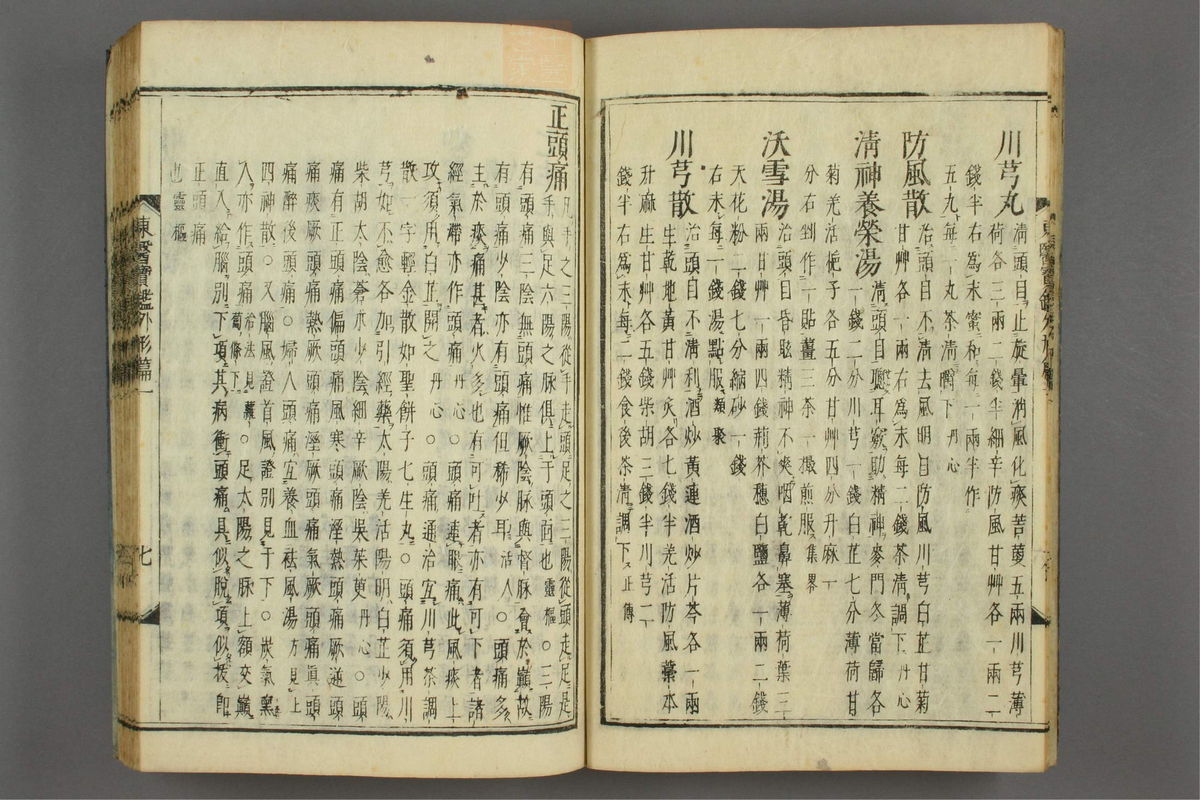 川芎丸 淸頭目止旋暈消風化痰苦蔓五兩川芎薄
荷各三兩二錢半細辛防風甘艸各一兩二
錢半右爲末蜜和每一兩半作
五丸每一丸茶淸嚼下丹心
防風散 治頭目不淸去風明目防風川芎白芷甘菊
甘艸各一兩右爲末每二錢茶淸調下丹心
淸神養榮湯 淸頭目聰耳竅助精神麥門冬當歸各
一錢二分川芎一錢白芷七分薄荷甘
菊羌活梔子各五分甘艸四分升麻二
分右剉作一貼薑三茶一撮煎服集畧
沃雪湯 治頭目昏眩精神不爽咽乾鼻塞薄荷葉三
兩甘艸一兩四錢荊芥穗白鹽各一兩二錢
天花粉二錢七分縮砂一錢
右末每一錢湯點服類聚
川芎散 治頭目不淸利酒炒黃連酒炒片芩各一兩
生乾地黃甘艸灸各七錢半羌活防風藁本
升麻生甘艸各五錢柴胡三錢半川芎二
錢半右爲末每二錢食後茶淸調下正傳
正頭痛 凡手之三陽從手走頭足之三陽從頭走足是
手與足六陽之脉俱上于頭面也靈樞○三陽
有頭痛三陰無頭痛惟厥陰脉與督脉會於巔故
有頭痛少陰亦有頭痛但稀少耳活人○頭痛多
主於痰痛甚者火多也有可吐者亦有可下者諸
經氣滯亦作頭痛丹心○頭痛連腦痛此風痰上
攻須用白芷開之丹心○頭痛通治宜川芎茶調
散一字輕金散如聖餠子七生丸○頭痛須用川
芎如不愈各加引經藥太陽羌活陽明白芷少陽
柴胡太陰蒼朮少陰細辛厥陰吳茱萸丹心○頭
痛有正頭痛偏頭痛風寒頭痛溼熱頭痛厥逆頭
痛痰厥頭痛熱厥頭痛溼厥頭痛氣厥頭痛眞頭
痛醉後頭痛○婦人頭痛宜養血祛風湯方見上
四神散○又腦風證首風證別見于下○炭氣熏
人亦作頭痛治法見蘿蔔條下○足太陽之脉上額交巔
直入絡腦別下項其病衝頭痛目似脫項似拔卽
正頭痛
也靈樞
東醫寶鑑外形篇一
七